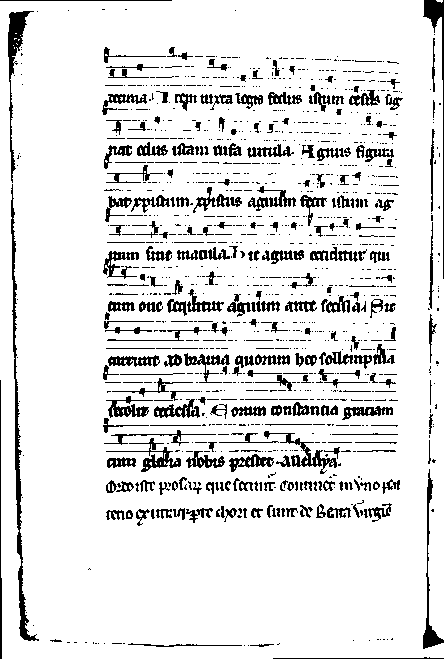 tecma. Item iuxta legis fedus istum celis sig
nat edus istam rufa vitula. Agnus figura
bat xpistum. xpistus agnum fecit istum ag
num sine macula. Hic agnus occiditur qui
cum oue sequitur agnum ante secula. Sic
currunt ad brauia quorum hec sollempnia
recolit ecclesia. Eorum constancia graciam
cum gloria nobis prestet. Alleluya.
Ordo iste prosarum que secuntur
et sunt de Beata Virgine